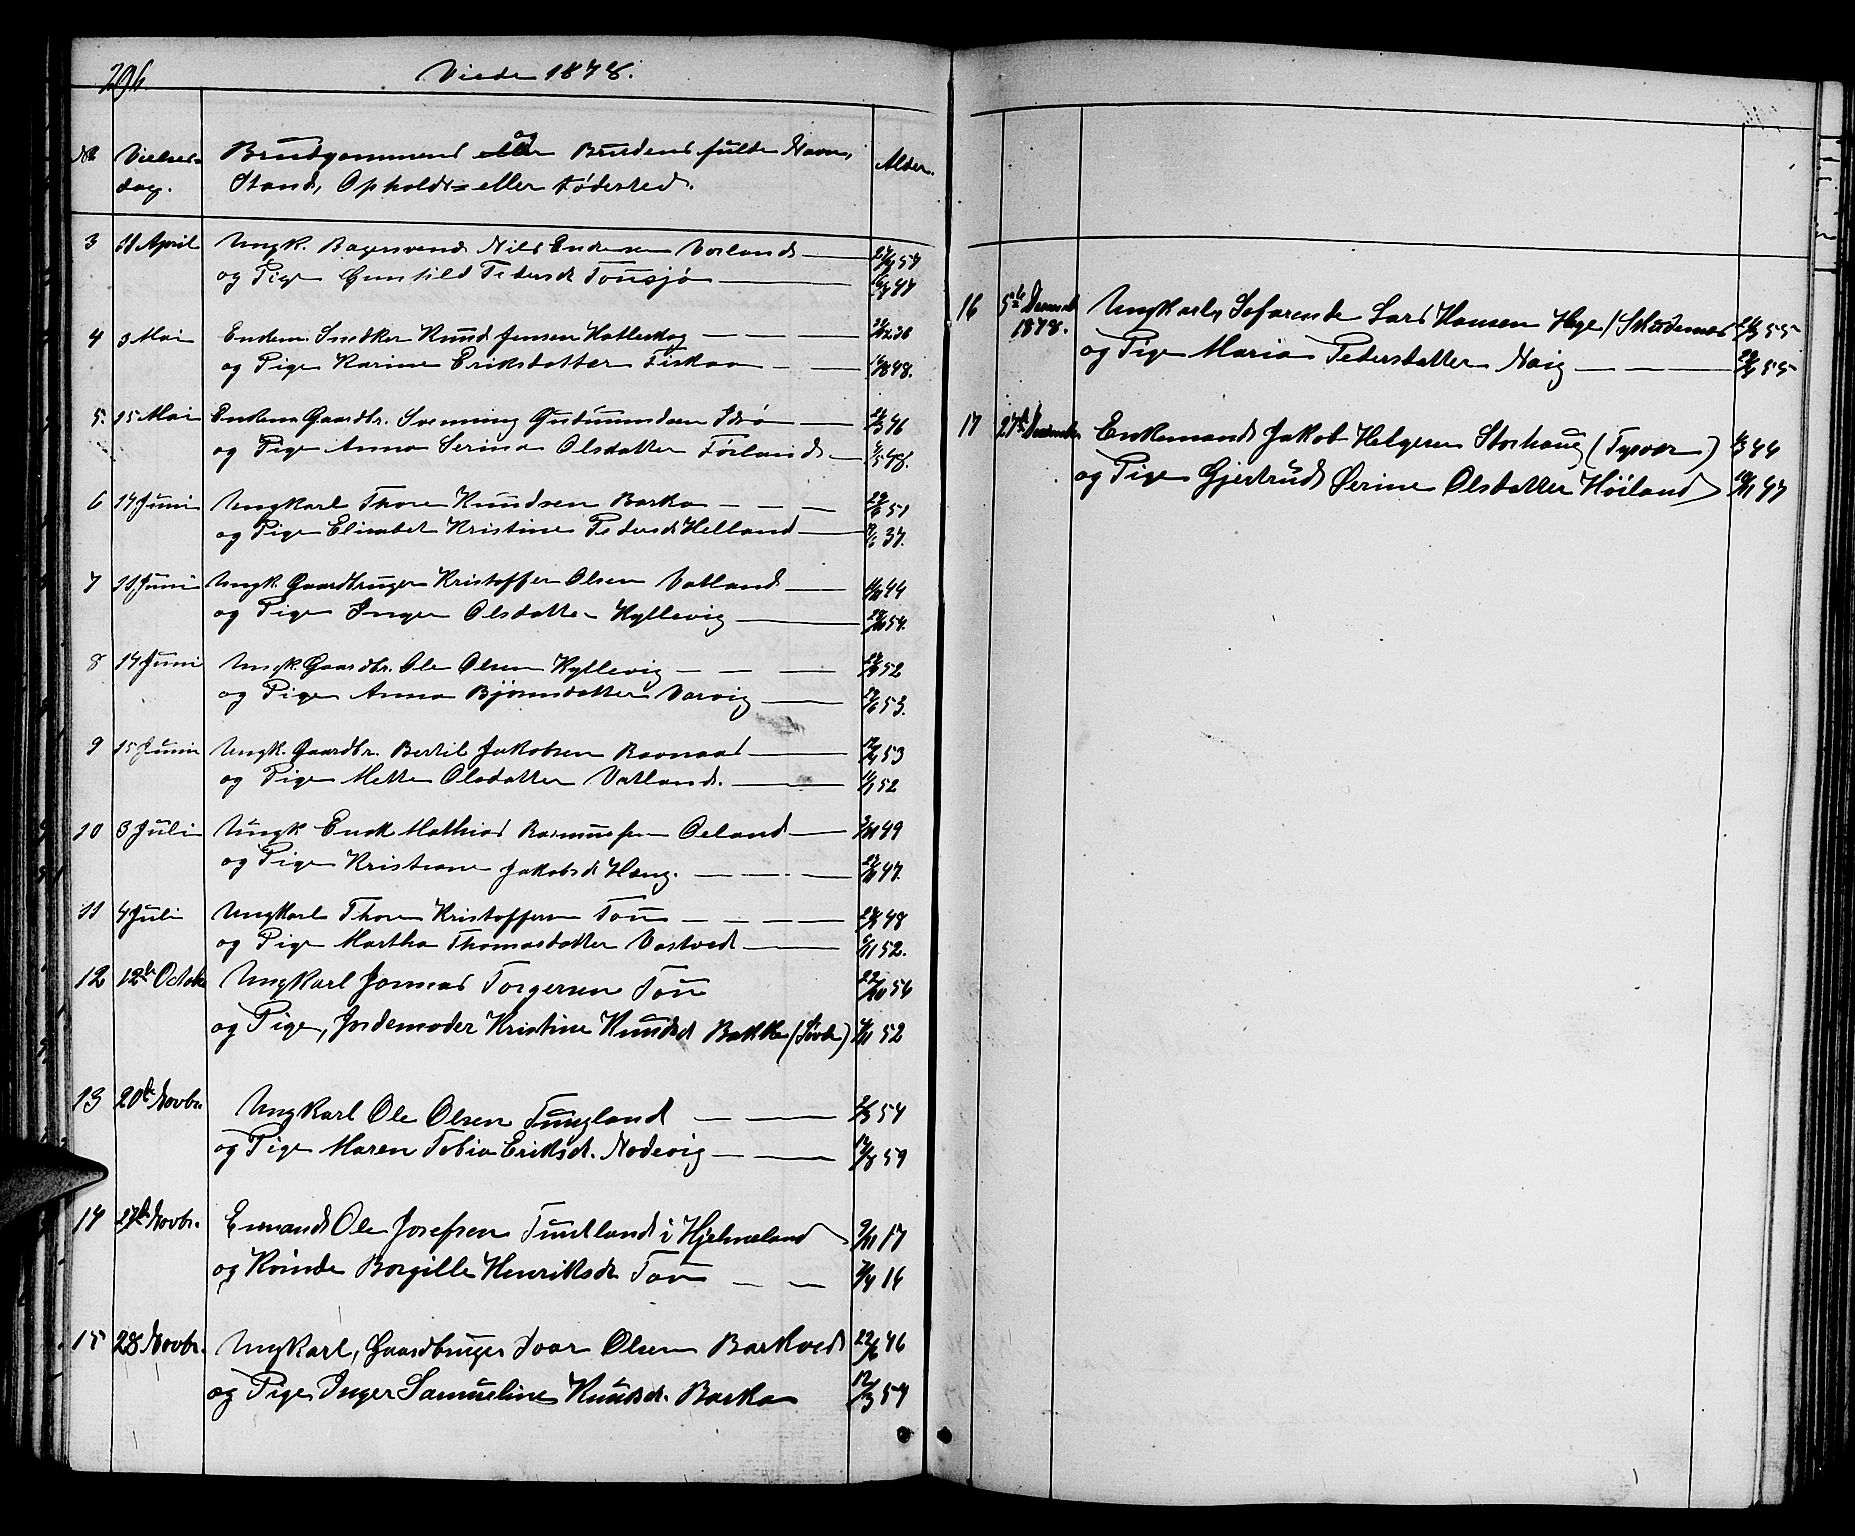 296
Viede 1878.
No Vielses- dag. Brudgommens og Brudens fulde Navn, Alder.
Stand, Opholds- eller Fødested.
3 11 April Ungk. Bagersvend Nils Endresen Vorland 57
og Pige Gunhild Pedersd Tousjø 47
4 3 Mai Enkem. Snedker Knud Jensen Hatleskog 38
og Pige Karine Eriksdatter Fiskaa 48.
5. 15 Mai Enkem Gaardbr. Svenning Gudmundsen Idsø 46
og Pige Anna Serina Olsdatter Førland 48.
6 14 Juni Ungkarl Thore Knudsen Barka 51
og Pige Elisabet Kristine Pedersd Helland 37.
7 11 Juni Ungk. Gaardbruger Kristoffer Olsen Vatland 44
og Pige Inger Olsdatter Hyllevig 54.
8 14 Juni Ungk. Gaardbr. Ole Olsen Hyllevig 52
og Pige Anna Bjørnsdatter Varvig 53.
9 15 Juni Ungk. Gaardbr. Bertil Jakobsen 53
og Pige Mette Olsdatter Vatland. 52
10 3 Juli Ungk Enok Mathias Rasmussen Øeland 49
og Pige Kristiane Jakobsd Haug. 47.
11 4 Juli Ungkarl Thore Kristoffersen Tou 48
og Pige Martha Thomasdatter Vastved 52.
12 12te October Ungkarl Jonnas Torgersen Tou 22/10 56
og Pige, Jordemoder Kristine Knudsd Bakke 52
13 20de Novbr. Ungkarl Ole Olsen Tungland 54
og Pige Maren Tobia Eriksd. Nodevig 59
14 27de Novbr. Ole Josefsen Tuntland i Hjelmeland 17
og Kvinde Borgille Henriksd Tou 16
15 28 Novbr. Ungkarl, Gaardbruger Ivar Olsen Barkved 22/6 46
og Pige Inger Samueline Knudsd. Barka 12/3 54
16 5te December 1878. Ungkarl, Søfarende Lars Hansen Hage 55
og Pige Maria Pedersdatter Naig 55
17 27de December Enkemand Jakob Helgesen Storhaug (Tysvær) 44
og Pige Gjertrud Serine Olsdatter Høiland 47